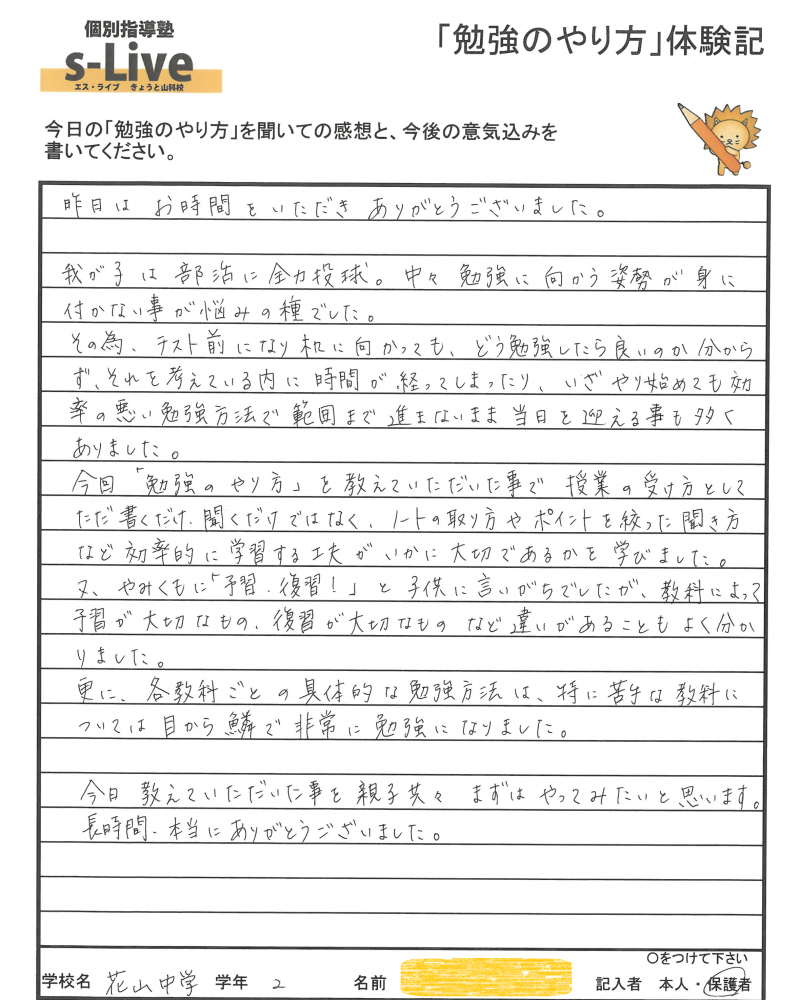 個別指導塾
s-Live
エス・ライブ きょうと山科校
「勉強のやり方」体験記
今日の「勉強のやり方」を聞いての感想と、今後の意気込みを
書いてください。
昨日は お時間をいただき ありがとうございました。
我が子は部活に全力投球。中々勉強に向かう姿勢が身に
付かない事が悩みの種でした。
その為、テスト前になり机に向かっても、どう勉強したら良いのか分から
ず、それを考えている内に時間が経ってしまったり、いざやり始めても効
率の悪い勉強方法で範囲まで進まないまま当日を迎える事も多く
ありました。
今回「勉強のやり方」を教えていただいた事で授業の受け方として
ただ書くだけ、聞くだけではなく、ノートの取り方やポイントを絞った聞き方
など効率的に学習する工夫がいかに大切であるかを学びました。
又、やみくもに「予習、復習!」と子供に言いがちでしたが、教科によって
予習が大切なもの、復習が大切なものなど違いがあることもよく分か
りました。
更に、各教科ごとの具体的な勉強方法は、特に苦手な教科に
ついては目から鱗で非常に勉強になりました。
今日教えていただいた事を親子共々まずはやってみたいと思います。
長時間、本当にありがとうございました。
〇をつけて下さい
学校名 花山中学 学年 2 名前 記入者 本人・保護者